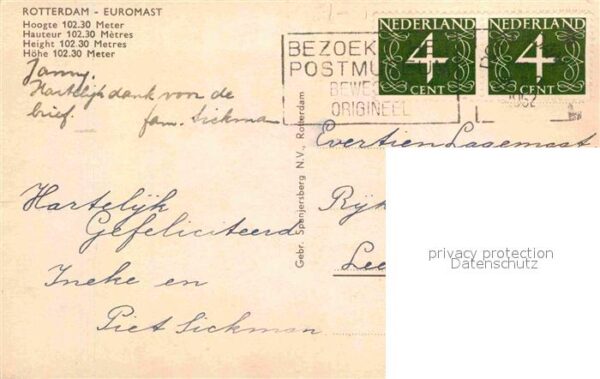 ROTTERDAM - EUROMAST
Hoogte 102.30 Meter
Hauteur 102.30 Mètres
Height 102.30 Metres
Höhe 102.30 Meter
Janny.
Hartelijk dank voor de
brief.
fam. Sickman
BEZOEK
POSTMU
BEWE
ORIGINEEL
NEDERLAND
4
CENT
NEDERLAND
4
CENT
Gebr. Spanjersberg N.V., Rotterdam
Evertien Lagemast
Rijk
Lee
Hartelijk
Gefeliciteerd
Ineke en
Piet Sickman
privacy protection
Datenschutz